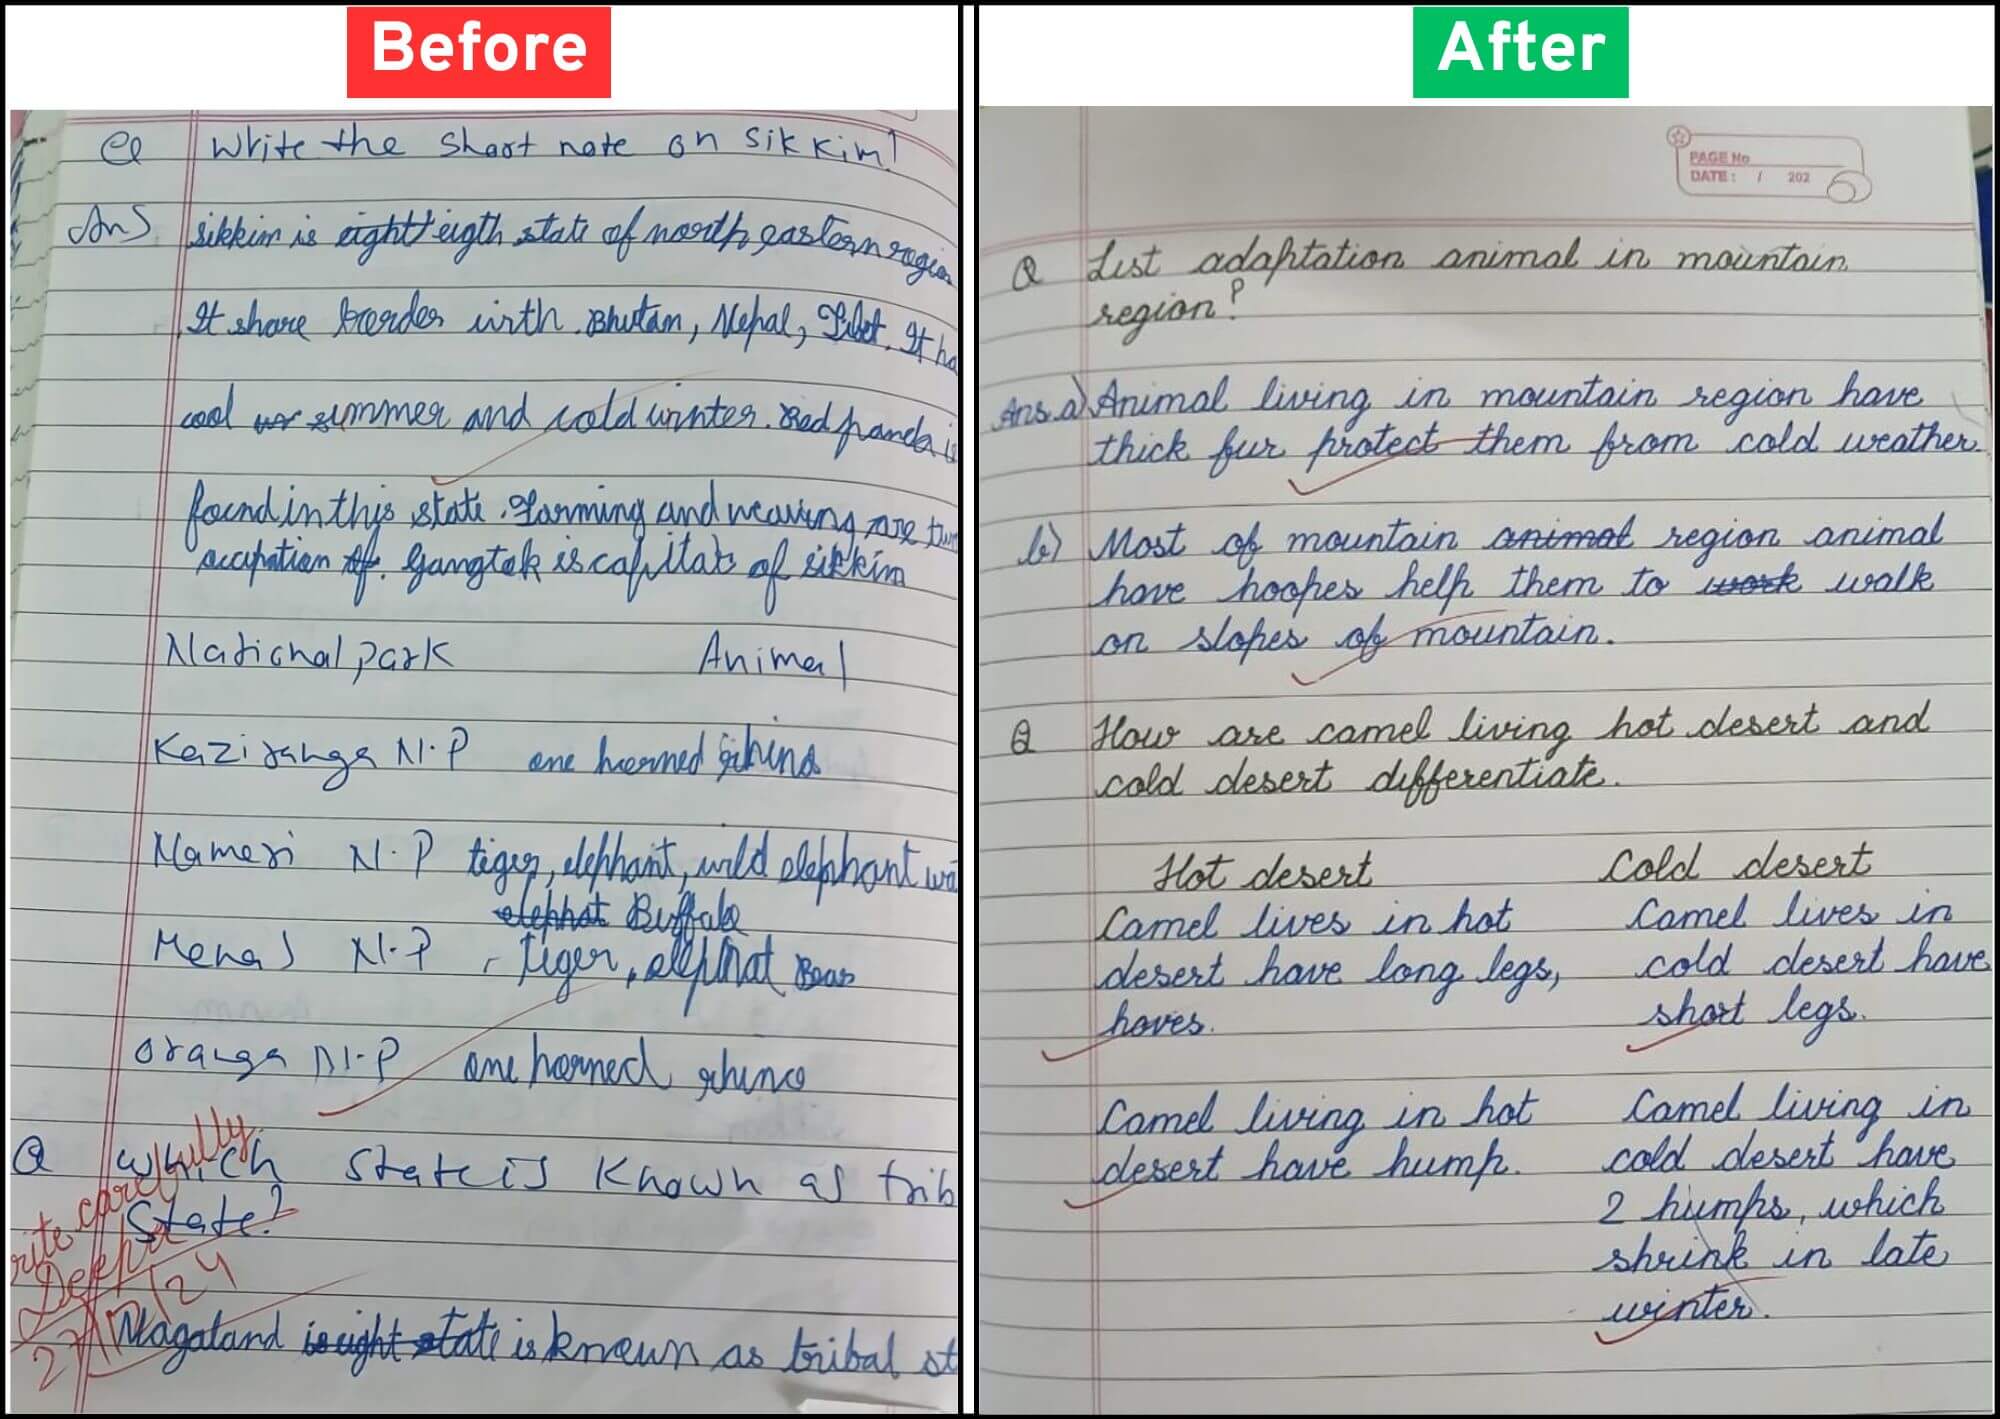 Before
Q Write the short note on Sikkim!
Ans sikkim is eight eigth state of north eastern region
It share border with Bhutan, Nepal, Tibet. It ha
cool war summer and cold winter. Red panda is
found in this state. Farming and weaving are
occupation of. Gangtok is capitals of sikkim
National park Animal
Kaziranga N.P one horned rhino
Nameri N.P tiger, elephant, wild elephant wa
elephat Buffalo
Menas N.P, tiger, elephat Bear
Oranga N.P one horned rhino
Q which state is known as trib
State?
rite carefully.
Deepa
27/12/24
Nagaland is eight state is known as tribal st
After
PAGE No
DATE: / 202
Q List adaptation animal in mountain
region?
Ans. a) Animal living in mountain region have
thick fur protect them from cold weather.
b) Most of mountain animal region animal
have hoopes help them to work walk
on slopes of mountain.
Q How are camel living hot desert and
cold desert differentiate.
Hot desert Cold desert
Camel lives in hot
desert have long legs,
hoves.
Camel lives in
cold desert have
short legs.
Camel living in hot
desert have hump.
Camel living in
cold desert have
2 humps, which
shrink in late
winter.